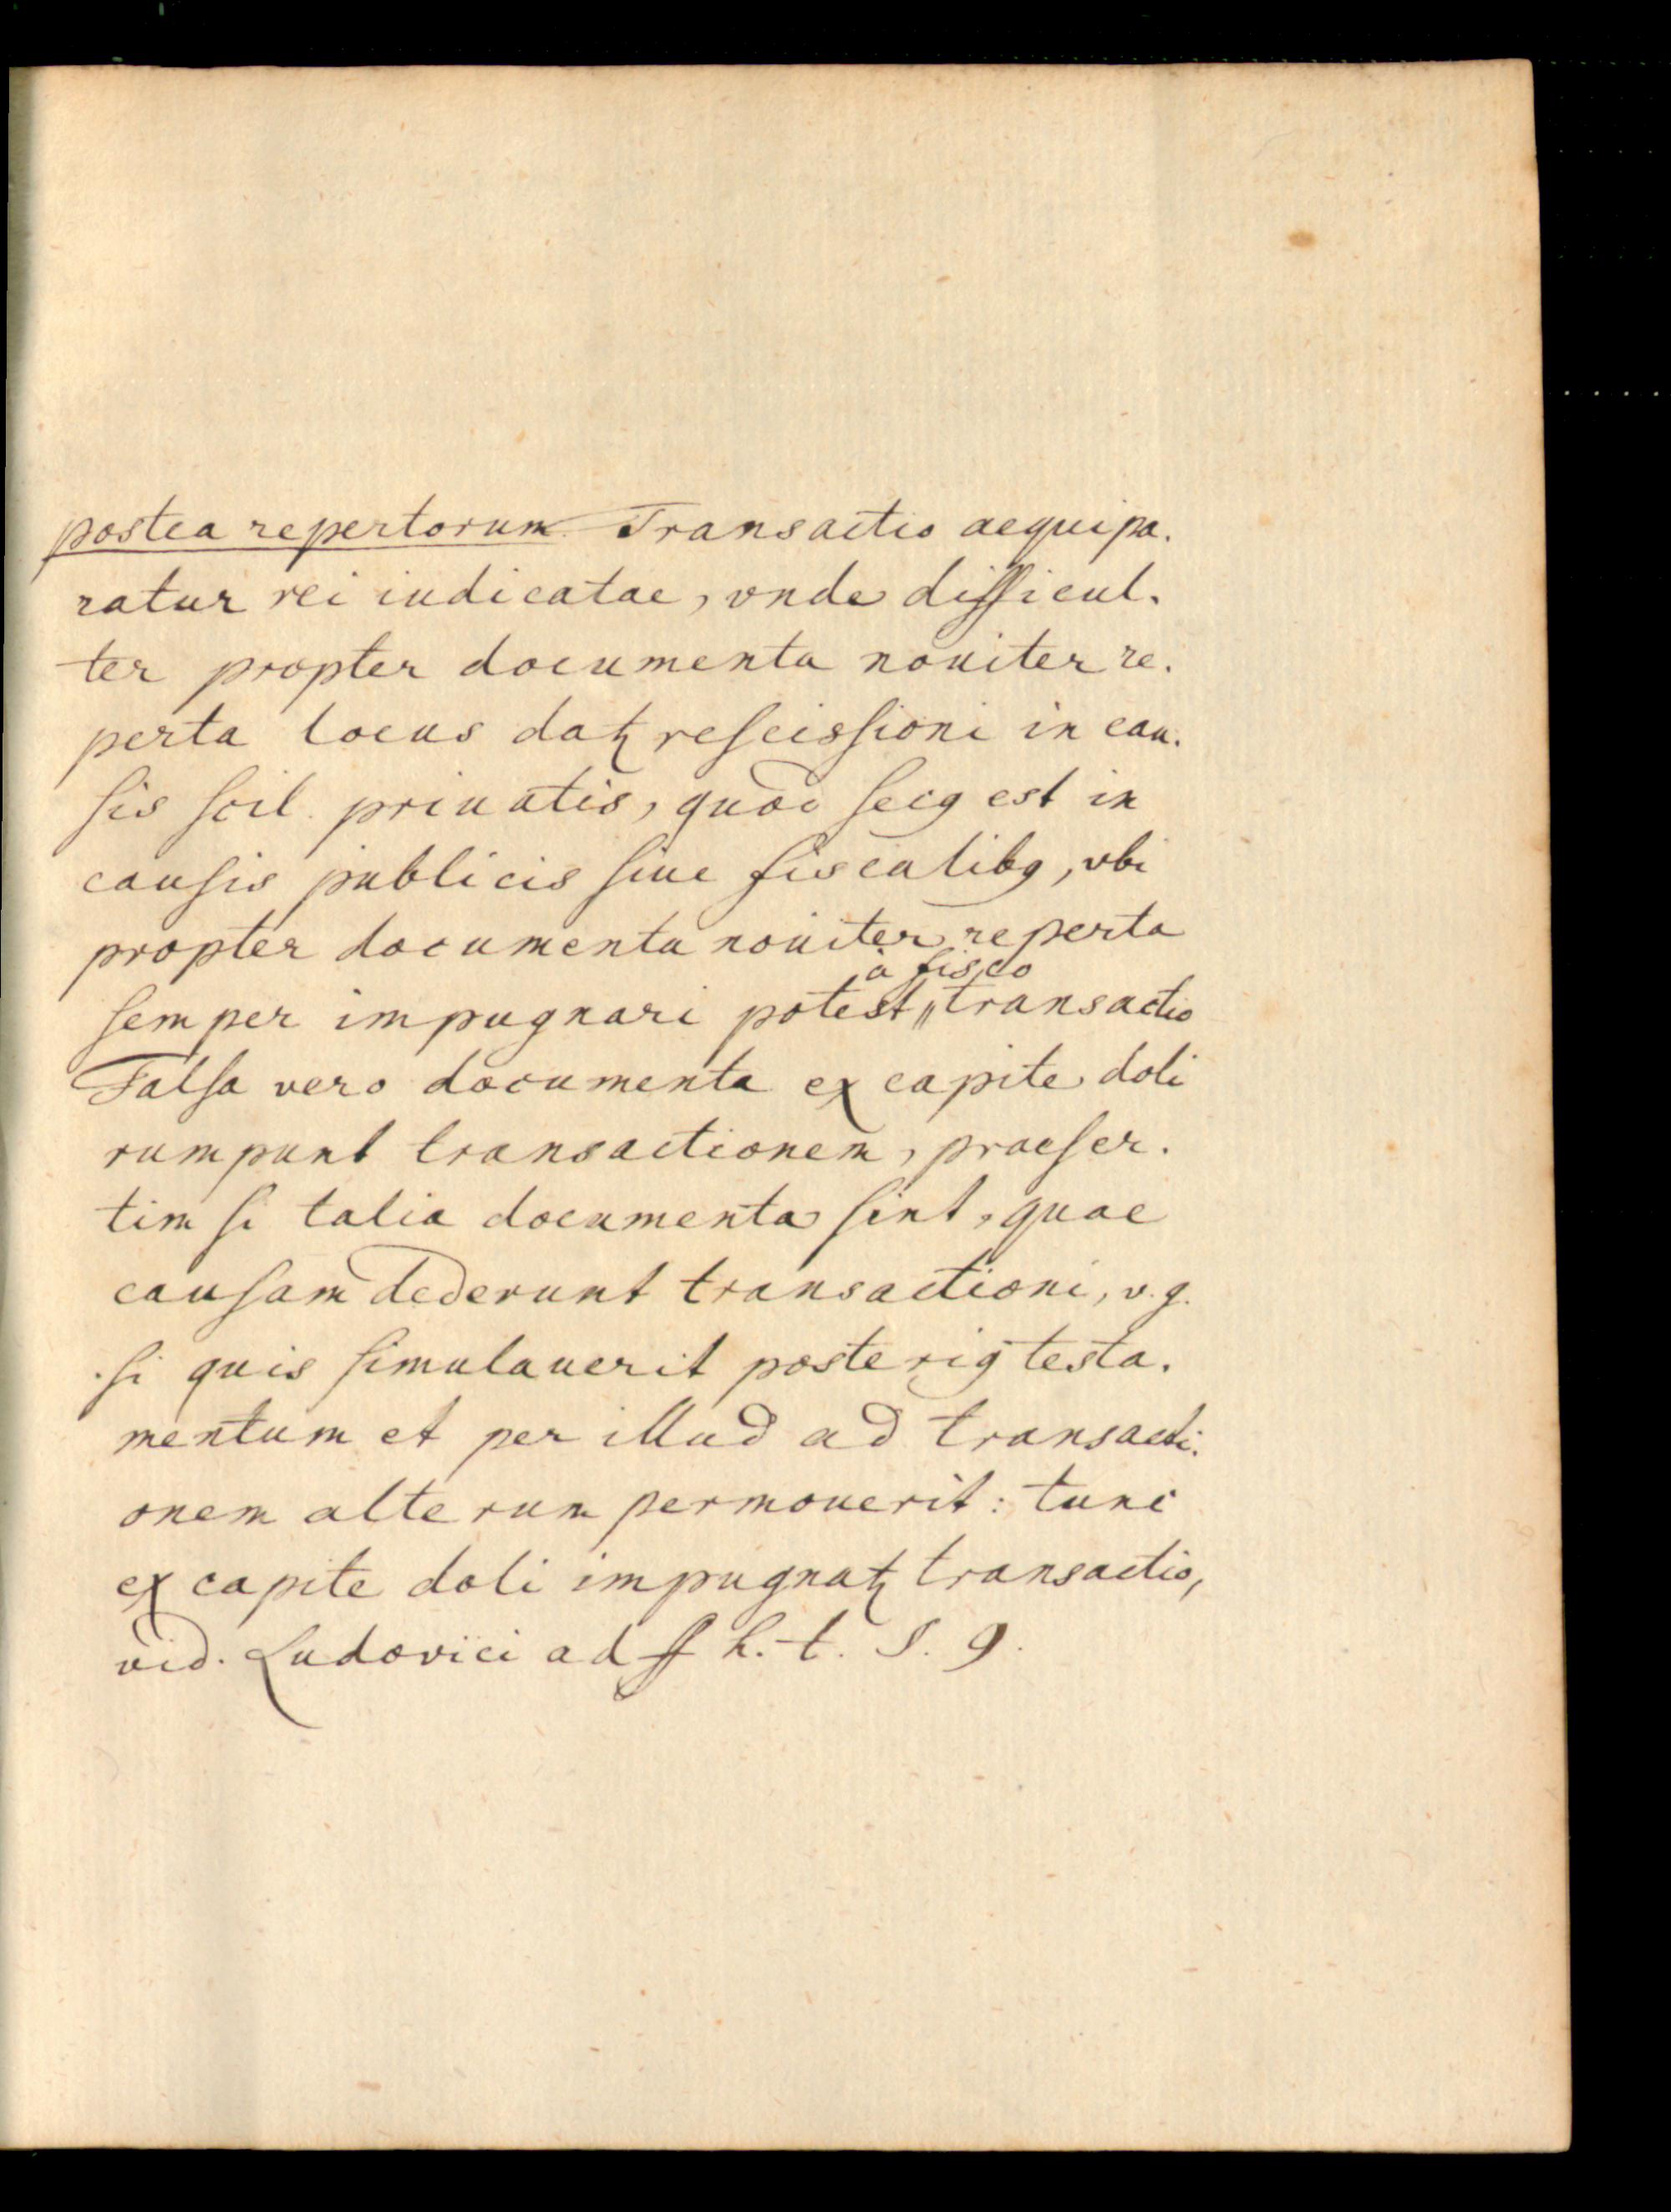 postea repertorum. Transactio aequipa.
ratur rei iudicatae, vnde difficul.
ter propter documenta nouiter re.
perta locus datꝛ reſcisſioni in cau.
ſis ſcil. priuatis, quod ſecꝰ est in
cauſis publicis ſiue fiscalibꝰ, vbi
propter documenta nouiter reperta
à fisco
ſemper impugnari potest,, transactio
Falſa vero documenta ex capite doli
rumpunt transactionem, praeſer.
tim ſi talia documenta ſint, quae
cauſam dederunt transactioni, v. g.
ſi quis ſimulauerit posteriꝰ testa.
mentum et per illud ad transacti.
onem alterum permouerit: tunc
ex capite doli impugnatꝛ transactio,
vid. Ludovici ad ff h. t. §. 9.